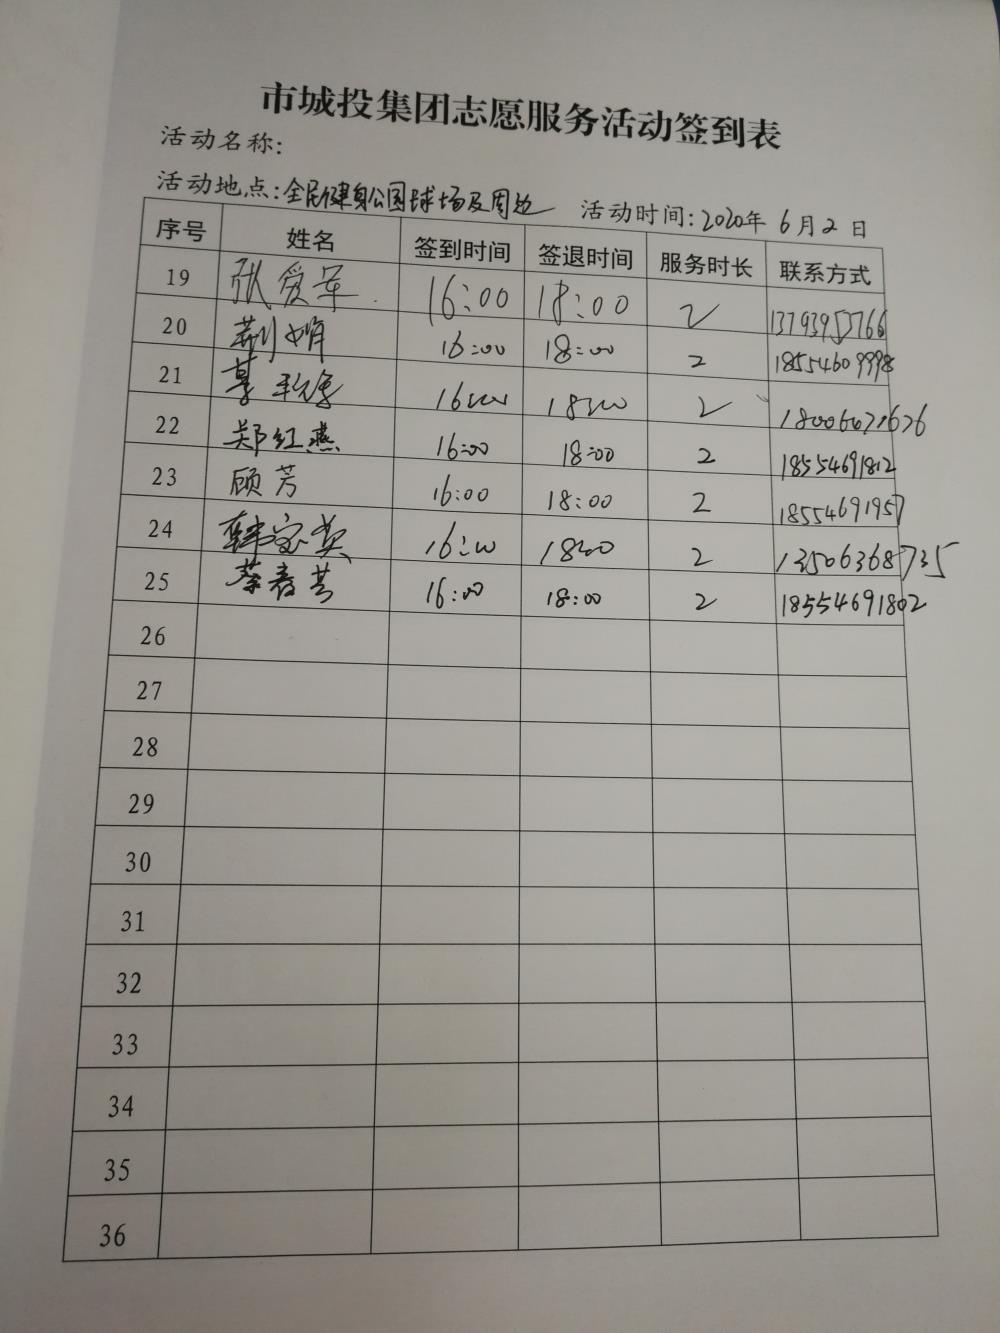 市城投集团志愿服务活动签到表
活动名称:
活动地点:全民健身公园球场及周边 活动时间:2020年 6月2日
序号 姓名 签到时间 签退时间 服务时长 联系方式
19 张爱军 16:00 18:00 2 13793957766
20 荆娟 16:00 18:00 2 18554609998
21 16:00 18:00 2 18006471676
22 郑红燕 16:00 18:00 2 18554691812
23 顾芳 16:00 18:00 2 18554691957
24 韩宝英 16:00 18:00 2 13506368735
25 蔡春芸 16:00 18:00 2 18554691802
26
27
28
29
30
31
32
33
34
35
36